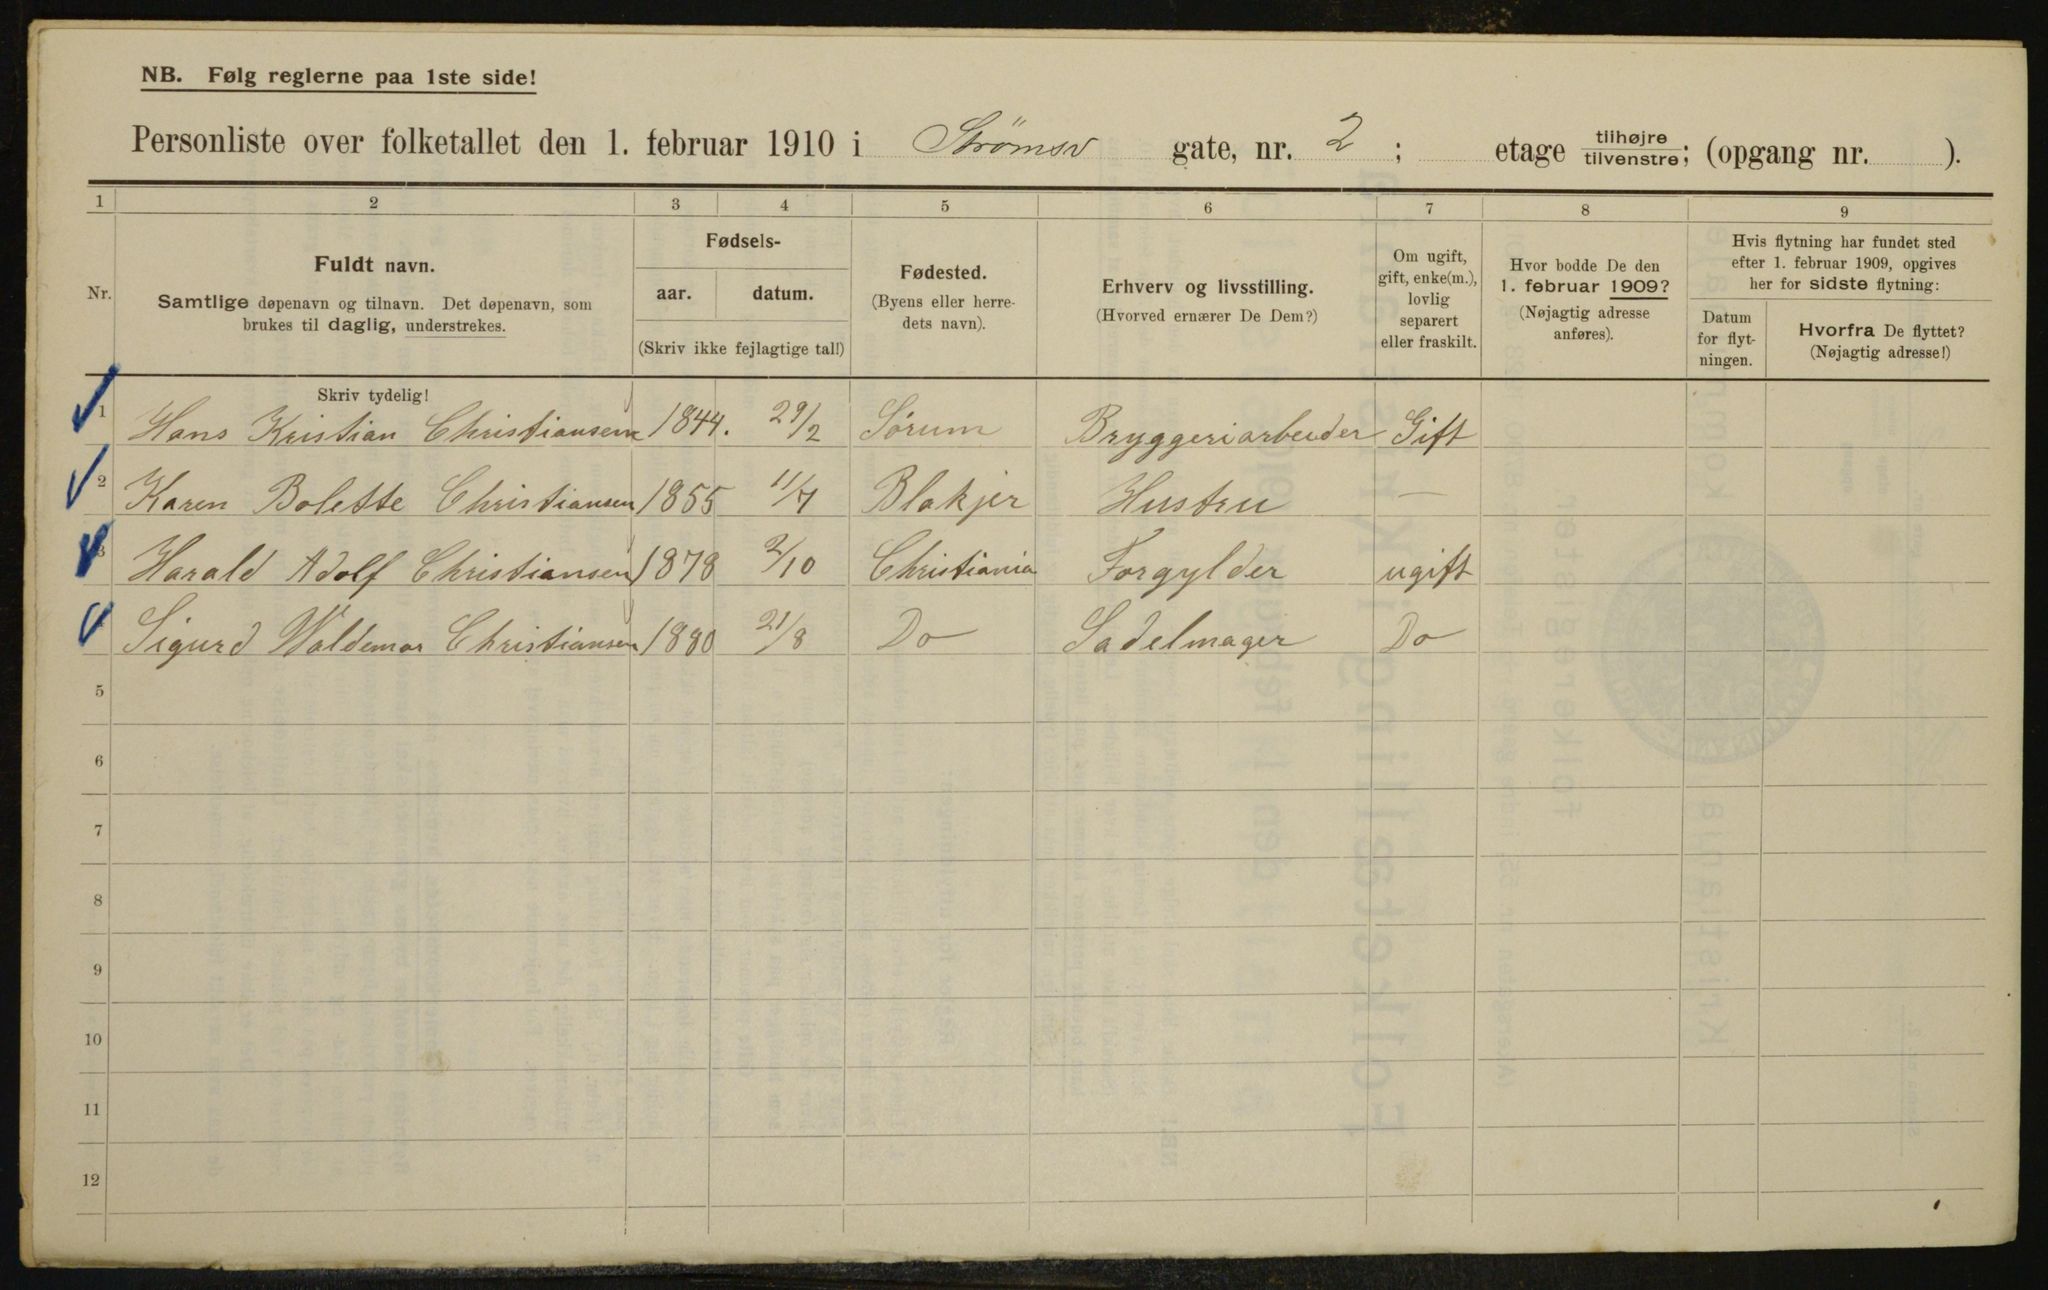 NB. Følg reglerne paa 1ste side!
Personliste over folketallet den 1. februar 1910 i Strömsv gate, nr. 2 ; etage tilhøjre/tilvenstre; (opgang nr. ).
1 2 3 4 5 6 7 8 9
Nr.
Fuldt navn.
Samtlige døpenavn og tilnavn. Det døpenavn, som
brukes til daglig, understrekes.
Fødsels-
aar. datum.
(Skriv ikke fejlagtige tal!)
Fødested.
(Byens eller herre-
dets navn).
Erhverv og livsstilling.
(Hvorved ernærer De Dem?)
Om ugift,
gift, enke(m.),
lovlig
separert
eller fraskilt.
Hvor bodde De den
1. februar 1909?
(Nøjagtig adresse
anføres).
Hvis flytning har fundet sted
efter 1. februar 1909, opgives
her for sidste flytning:
Datum
for flyt-
ningen.
Hvorfra De flyttet?
(Nøjagtig adresse!)
Skriv tydelig!
1 Hans Kristian Christiansen 1844. 29/2 Sórum Bryggeriarbeider Gift
2 Karen Bolette Christiansen 1855 11/7 Blakjer Hustru —
3 Harald Adolf Christiansen 1878 2/10 Christiania Forgylder ugift
4 Sigurd Waldemar Christiansen 1880 21/8 Do Sadelmager Do
5
6
7
8
9
10
11
12